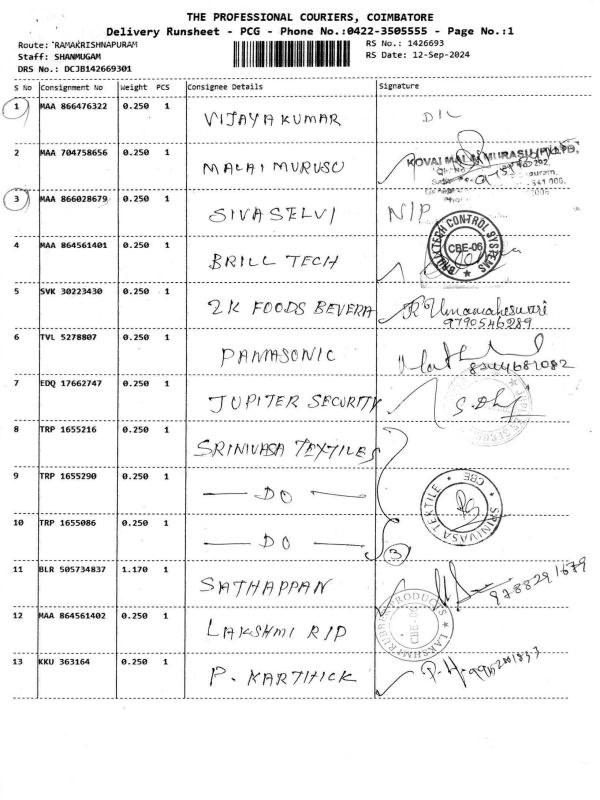 THE PROFESSIONAL COURIERS, COIMBATORE
Delivery Runsheet - PCG - Phone No.:0422-3505555 - Page No.:1
Route: RAMAKRISHNAPURAM RS No.: 1426693
Staff: SHANMUGAM RS Date: 12-Sep-2024
DRS No.: DCJB142669301
S No Consignment No Weight PCS Consignee Details Signature
1 MAA 866476322 0.250 1 VIJAYAKUMAR D/L
2 MAA 704758656 0.250 1 MALAI MURUSU KOVAI MALAI MURASU
3 MAA 866028679 0.250 1 SIVASELVI N/P
4 MAA 864561401 0.250 1 BRILL TECH BRILLTECH CONTROL SYSTEMS CBE-06
5 SVK 30223430 0.250 1 2K FOODS BEVERA R Umamaheswari
9790546289
6 TVL 5278807 0.250 1 PANASONIC
7 EDQ 17662747 0.250 1 JUPITER SECURITY
8 TRP 1655216 0.250 1 SRINIVASA TEXTILES
9 TRP 1655290 0.250 1 — DO — SRINIVASA TEXTILE CBE
10 TRP 1655086 0.250 1 — DO — 3
11 BLR 505734837 1.170 1 SATHAPPAN 9788291679
12 MAA 864561402 0.250 1 LAKSHMI R/P LAKSHMI RUBBER PRODUCTS CBE-06
13 KKU 363164 0.250 1 P. KARTHICK